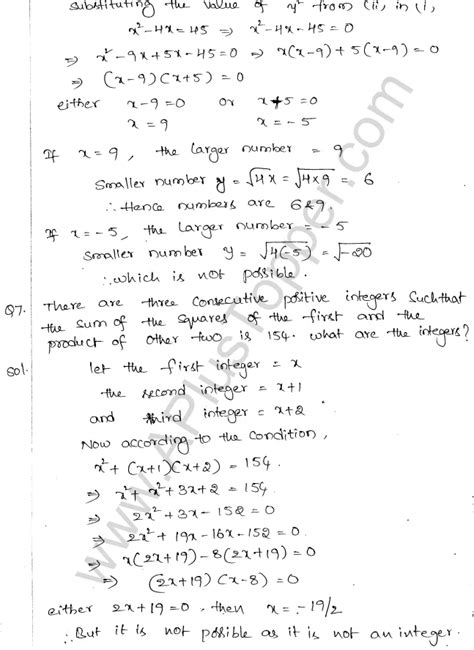 substituting the value of y² from (ii), in (i),
x²-4x=45 ⇒ x²-4x-45=0
⇒ x²-9x+5x-45=0 ⇒ x(x-9)+5(x-9)=0
⇒ (x-9)(x+5)=0
either x-9=0 or x+5=0
x=9 x=-5
If x=9, the larger number = 9
Smaller number y=√4x=√4×9 = 6
∴ Hence numbers are 6&9.
If x=-5, the larger number = -5
Smaller number y = √4(-5) = √-20
∴ which is not possible.
Q7. There are three consecutive positive integers such that
the sum of the squares of the first and the
product of other two is 154. what are the integers?
Sol. let the first integer = x
the second integer = x+1
and third integer = x+2
Now according to the condition,
x²+(x+1)(x+2)=154.
⇒ x²+x²+3x+2=154
⇒ 2x²+3x-152=0
⇒ 2x²+19x-16x-152=0
⇒ x(2x+19)-8(2x+19)=0
⇒ (2x+19)(x-8)=0
either 2x+19=0, then x=-19/2
∴ But it is not possible as it is not an integer.
www.APlusTopper.com